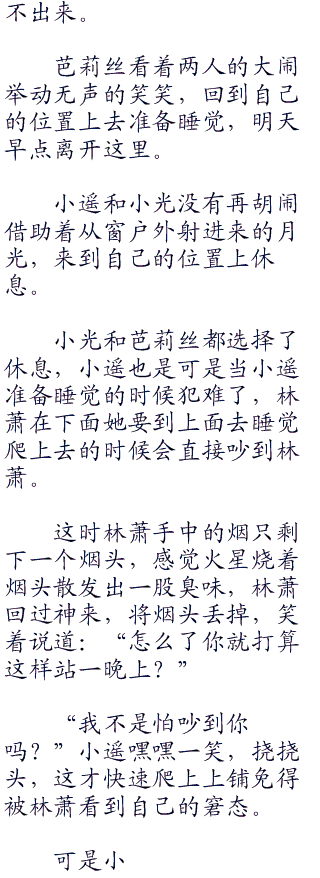 不出来。
芭莉丝看着两人的大闹
举动无声的笑笑，回到自己
的位置上去准备睡觉，明天
早点离开这里。
小遥和小光没有再胡闹
借助着从窗户外射进来的月
光，来到自己的位置上休
息。
小光和芭莉丝都选择了
休息，小遥也是可是当小遥
准备睡觉的时候犯难了，林
萧在下面她要到上面去睡觉
爬上去的时候会直接吵到林
萧。
这时林萧手中的烟只剩
下一个烟头，感觉火星烧着
烟头散发出一股臭味，林萧
回过神来，将烟头丢掉，笑
着说道：“怎么了你就打算
这样站一晚上？”
“我不是怕吵到你
吗？”小遥嘿嘿一笑，挠挠
头，这才快速爬上上铺免得
被林萧看到自己的窘态。
可是小